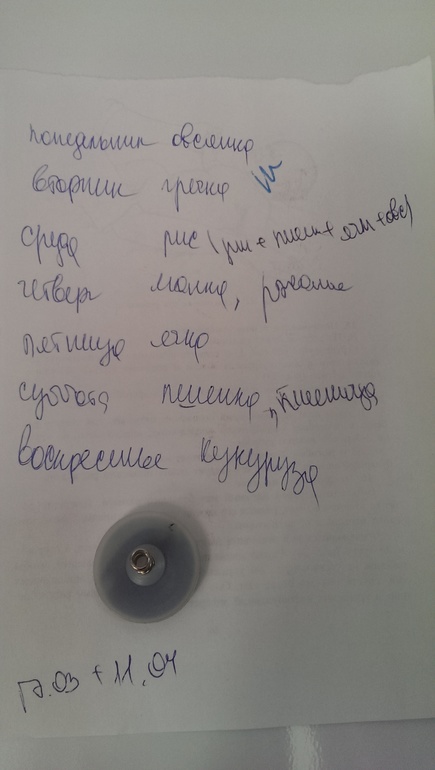 понедельник овсянка
вторник гречка
среда рис (рис + пшен + ячм + овс)
четверг манка, ржаные
пятница ячка
суббота пшенка, пшеница
воскресенье кукуруза
17.03 + 11.04